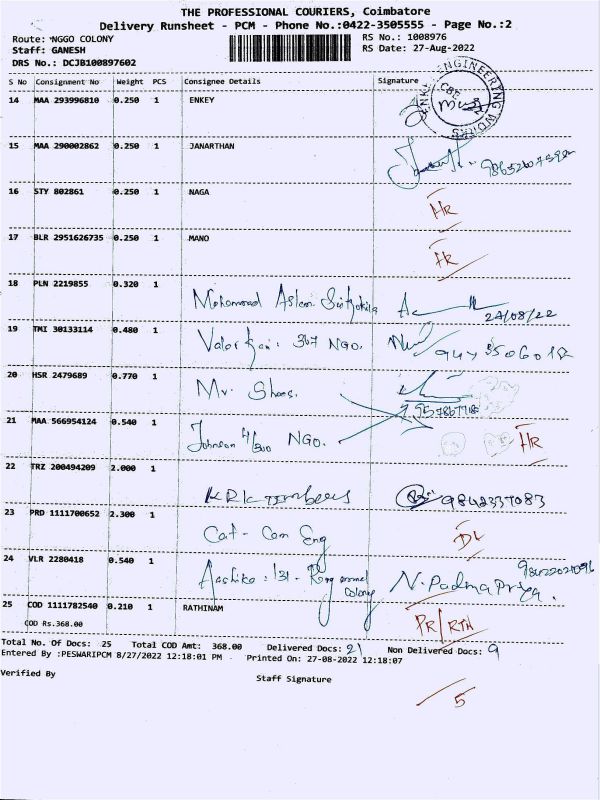 THE PROFESSIONAL COURIERS, Coimbatore
Delivery Runsheet - PCM - Phone No.:0422-3505555 - Page No.:2
Route: NGGO COLONY RS No.: 1008976
Staff: GANESH RS Date: 27-Aug-2022
DRS No.: DCJB100897602
S No Consignment No Weight PCS Consignee Details Signature
14 MAA 293996810 0.250 1 ENKEY
ENGINEERING WORKS CBE
15 MAA 290002862 0.250 1 JANARTHAN
16 STY 802861 0.250 1 NAGA HR
17 BLR 2951626735 0.250 1 MANO HR
18 PLN 2219855 0.320 1 Mohammad Aslam
19 TMI 30133114 0.480 1 367 NGO.
20 HSR 2479689 0.770 1 Mr. Shoes.
21 MAA 566954124 0.540 1 Johnson 4/300 NGO. HR
22 TRZ 200494209 2.000 1 KRK Timbers 9842337083
23 PRD 1111700652 2.300 1 Cat - Com Eng DL
24 VLR 2280418 0.540 1 Aashika 131 - Colony N. Padma Priya.
25 COD 1111782540 0.210 1 RATHINAM PR/RTN
COD Rs.368.00
Total No. Of Docs: 25 Total COD Amt: 368.00 Delivered Docs: 21 Non Delivered Docs: 9
Entered By :PESWARIPCM 8/27/2022 12:18:01 PM Printed On: 27-08-2022 12:18:07
Verified By Staff Signature
5